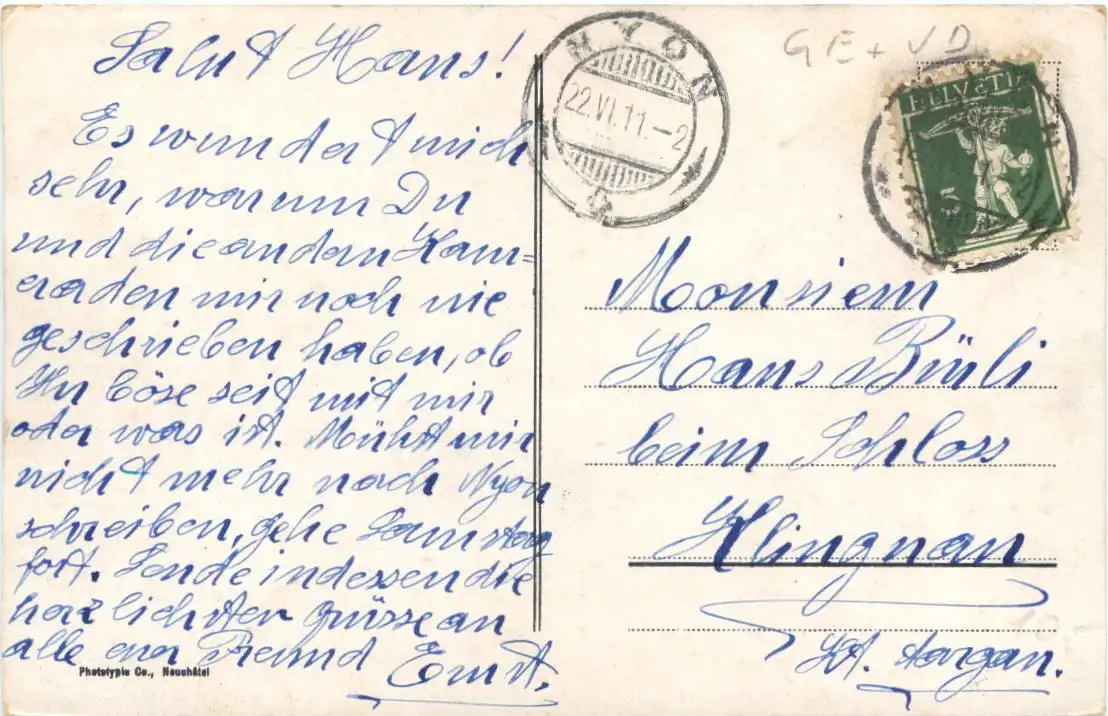 Salut Hans!
Es wundert mich
sehr, warum Du
und die andern Kam=
eraden mir noch nie
geschrieben haben, ob
Ihr böse seit mit mir
oder was ist. Müsst mir
nicht mehr nach Nyon
schreiben, gehe Samstag
fort. Sende indessen die
herzlichsten Grüsse an
alle euer Freund
Ernst.
Phototypie Co., Neuchâtel
NYON
22.VI.11.-2
GE + VD
HELVETIA
5
Monsieur
Hans Bürli
beim Schloss
Klingnau
Kt. Aargau.